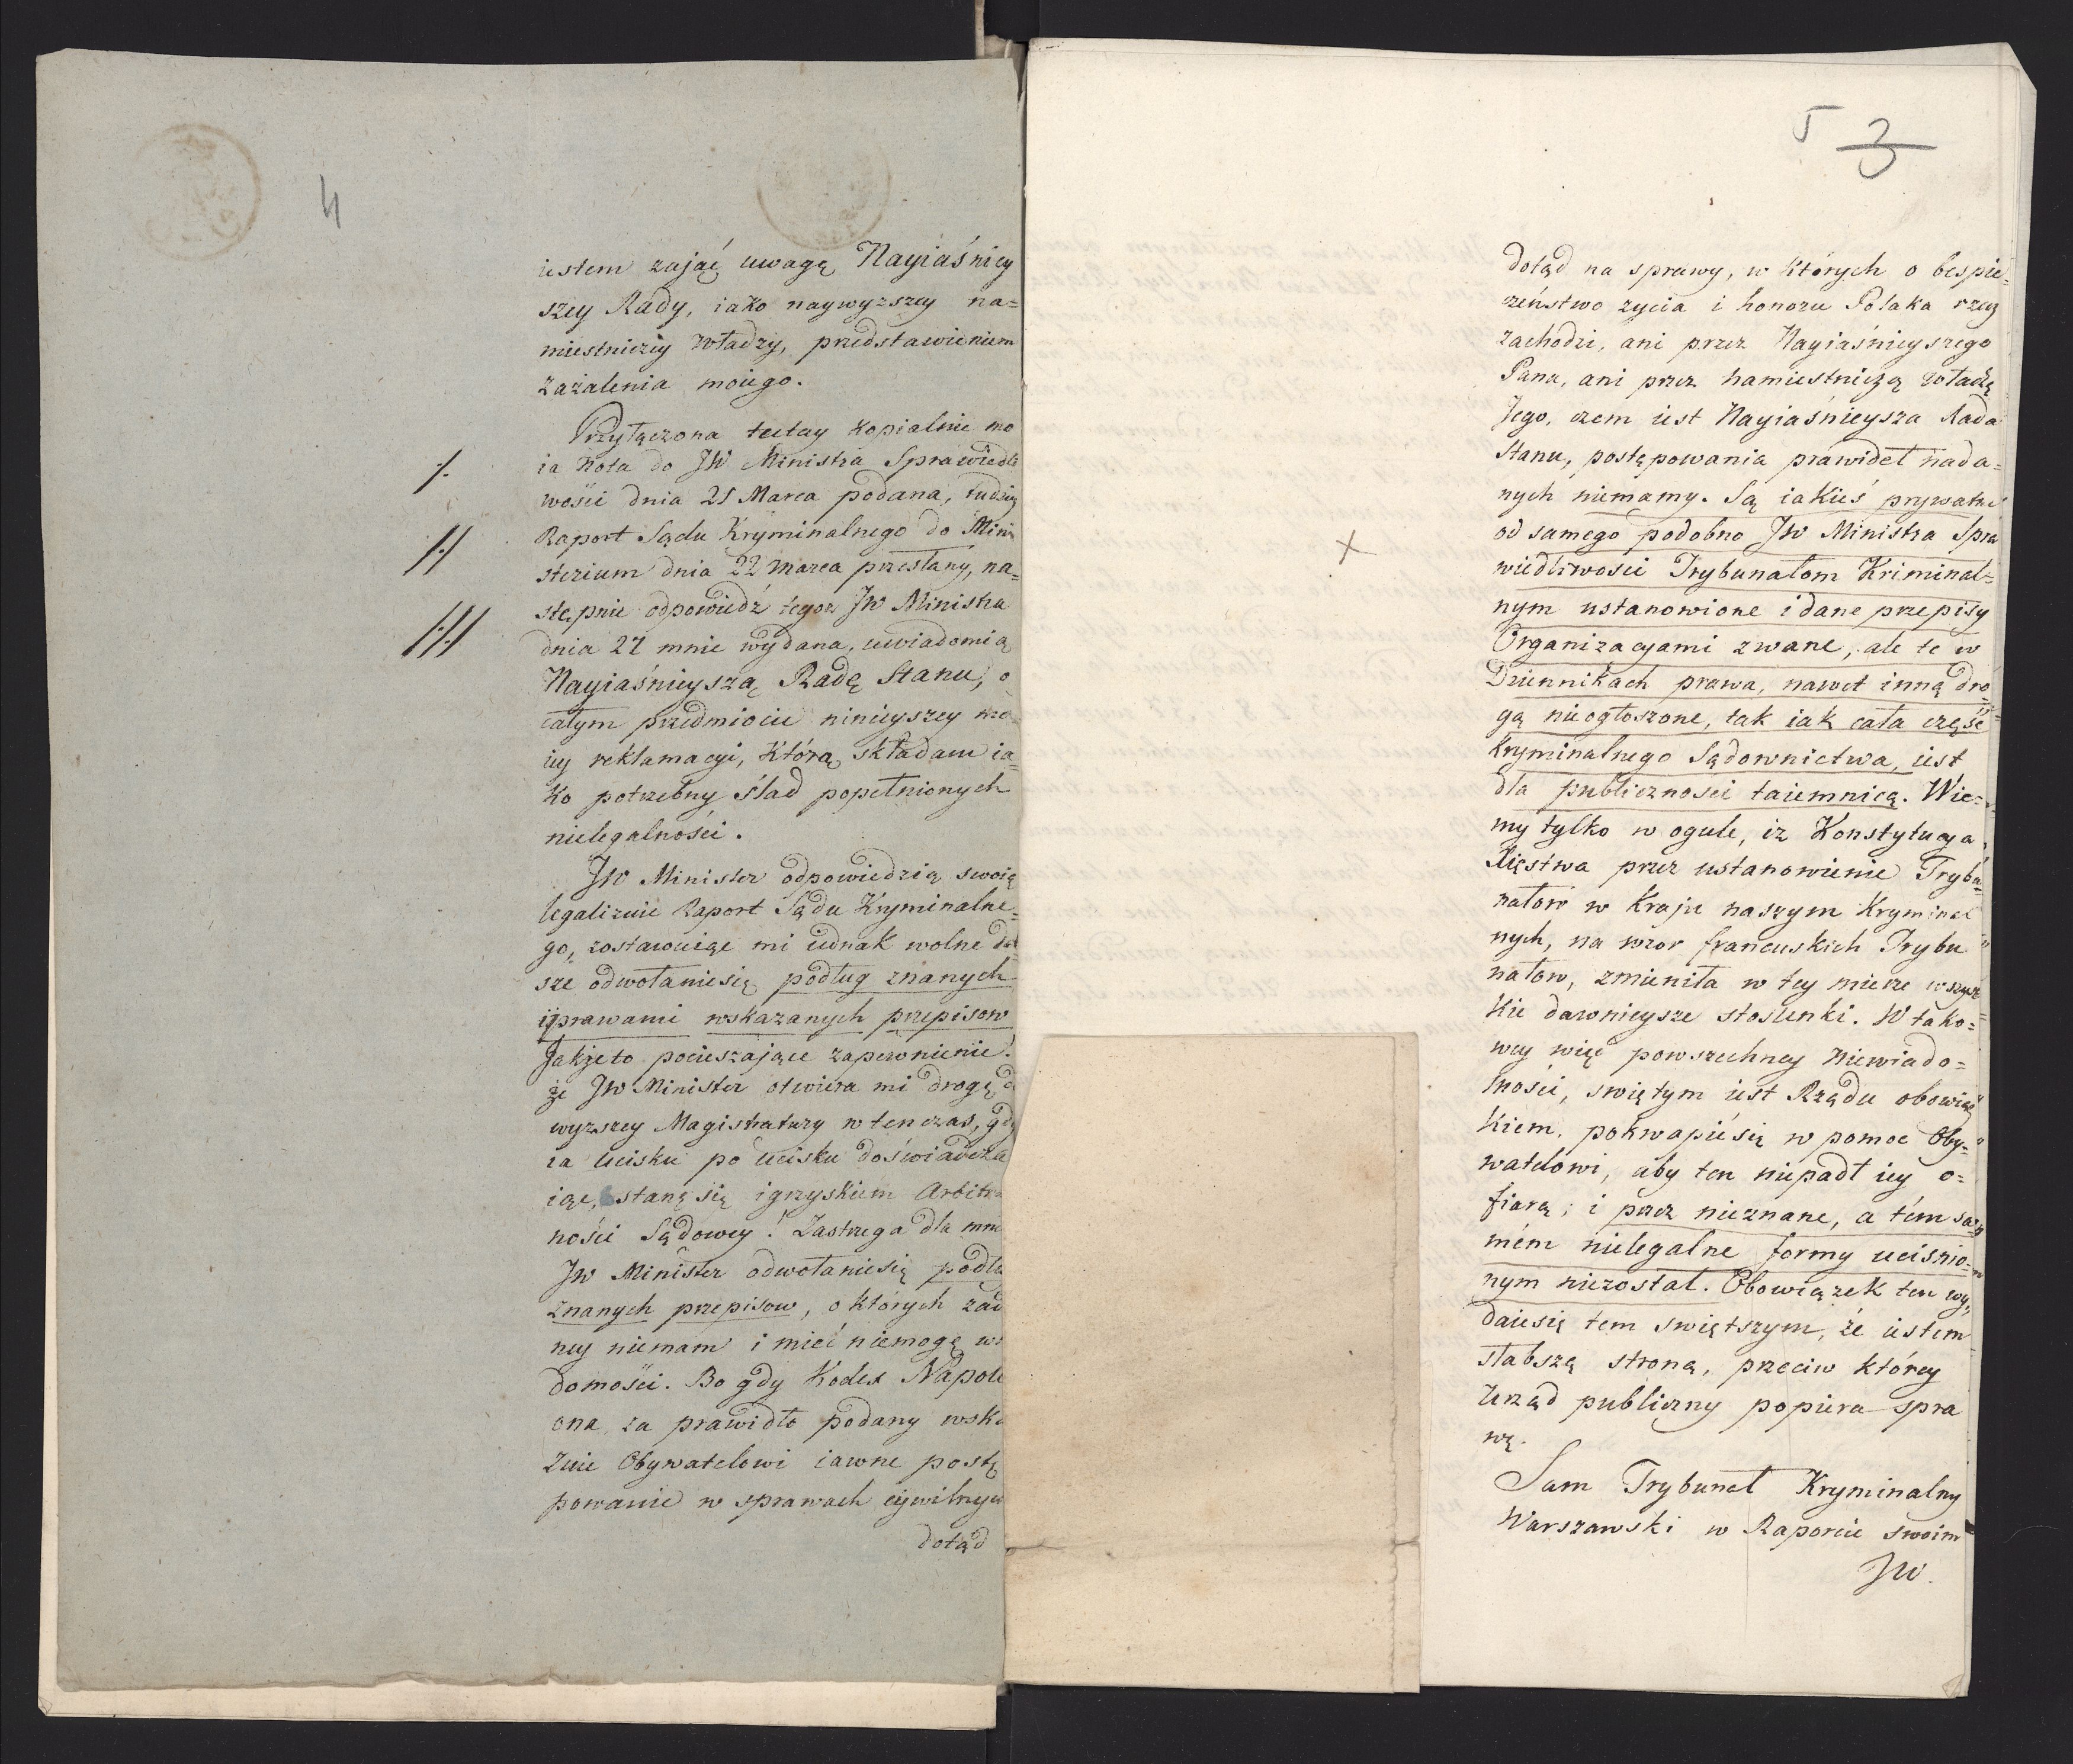 4
iestem zająć uwagę Nayiaśniey
szey Rady, iako naywyzszey na=
miestniczey Władzy, przedstawieniem
Zazalenia moiego.
Przyłączona tutay kopialnie mo
/. ia Nota do JW Ministra Sprawiedli
wości dnia 21 Marca podana, tudzież
/./ Raport Sądu Kryminalnego do Mini
sterium dnia 22 marca przesłany, na=
stępnie odpowiedź tegoż JW Ministra
/./·/ dnia 27 mnie wydana, uwiadomią
Nayiaśnieyszą Radę Stanu, o
całym przedmiocie ninieyszey mo
iey reklamacyi, którą składam ia=
ko potrzebny ślad popełnionych
nielegalności.
JW Minister odpowiedzią swoią
legalizuie Raport Sądu Kryminalne=
go, zostawuiąc mi iednak wolne dal
sze odwołaniesię podług znanych
i prawami wskazanych przepisow
Jakżeto pocieszające zapewnienie!
że JW Minister otwiera mi drogę d
wyzszey Magistratury w ten czas, gdy
ia ucisku po ucisku doświadcza
iąc, stanę się igrzyskiem Arbitra
ności Sądowey! Zastrzega dla mnie
JW Minister odwołaniesię podłu
znanych przepisow, o których zad
ney niemam i mieć niemogę wi
domości. Bo gdy Kodex Napole
ona za prawidło podany wska
zuie Obywatelowi iawne postę
powanie w sprawach cywilnych
dotąd
5 3
dotąd na sprawy, w których o bespie=
czeństwo zycia i honoru Polaka rzecz
zachodzi, ani przez Nayiaśnieyszego
Pana, ani przez namiestniczą władzę
Jego, czem iest Nayiaśnieysza Rada
Stanu, postępowania prawideł nada=
nych niemamy. Są iakieś prywatne
od samego podobno JW Ministra Spra
wiedliwości Trybunałom Kriminal=
nym ustanowione i dane przepisy
Organizacyami zwane, ale te w
Dziennikach prawa, nawet inną dro
gą nieogłoszone, tak iak cała część
Kryminalnego Sądownictwa, iest
dla publiczności taiemnicą. Wie=
my tylko w ogule, iz Konstytucya
Xięstwa przez ustanowienie Trybu=
nałow w Kraju naszym Kryminal
nych, na wzor francuskich Trybu
nałow, zmieniła w tey mierze wszyst
kie dawnieysze stosunki. W tako=
wey więc powszechney niewiado=
mości, swiętym iest Rządu obowiąz
kiem, pokwapićsię w pomoc Oby=
watelowi, aby ten niepadł iey o=
fiarą; i przez nieznane, a tém sa=
mém nielegalne formy uciśnio=
nym niezostał. Obowiązek ten wy=
daiesię tem swiętszym, że iestem
słabszą stroną, przeciw którey
Urząd publiczny popiera spra
wę.
Sam Trybunał Kryminalny
Warszawski w Raporcie swoim
JW.